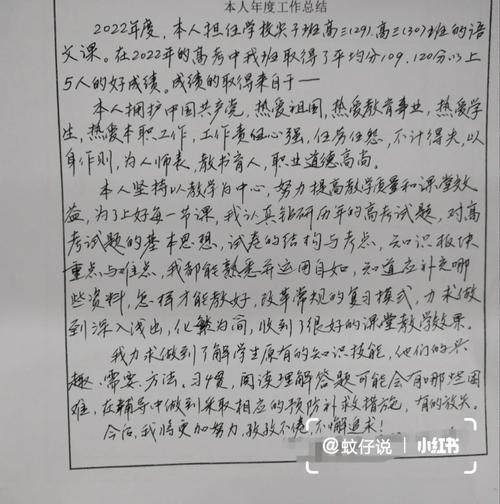 本人年度工作总结
2022年度，本人担任学校尖子班高三(29)、高三(30)班的语
文课。在2022年的高考中我班取得了平均分109，120分以上
5人的好成绩。成绩的取得来自于——
本人拥护中国共产党，热爱祖国，热爱教育事业，热爱学
生，热爱本职工作，工作责任心强，任劳任怨，不计得失，以
身作则，为人师表，教书育人，职业道德高尚。
本人坚持以教学为中心，努力提高教学质量和课堂效
益，为了上好每一节课，我认真钻研历年的高考试题，对高
考试题的基本思想、试卷的结构与考点、知识板块
重点与难点，我都能熟悉并运用自如，知道应补充哪
些资料，怎样才能教好，改革常规的复习模式，力求做
到深入浅出，化繁为简，收到了很好的课堂教学效果。
我力求做到了解学生原有的知识技能，他们的兴
趣、需要、方法、习惯，阅读理解答题可能会有哪些困
难，在辅导中做到采取相应的预防补救措施，有的放矢。
今后，我将更加努力，孜孜不倦，不懈追求！
@蚊仔说
小红书